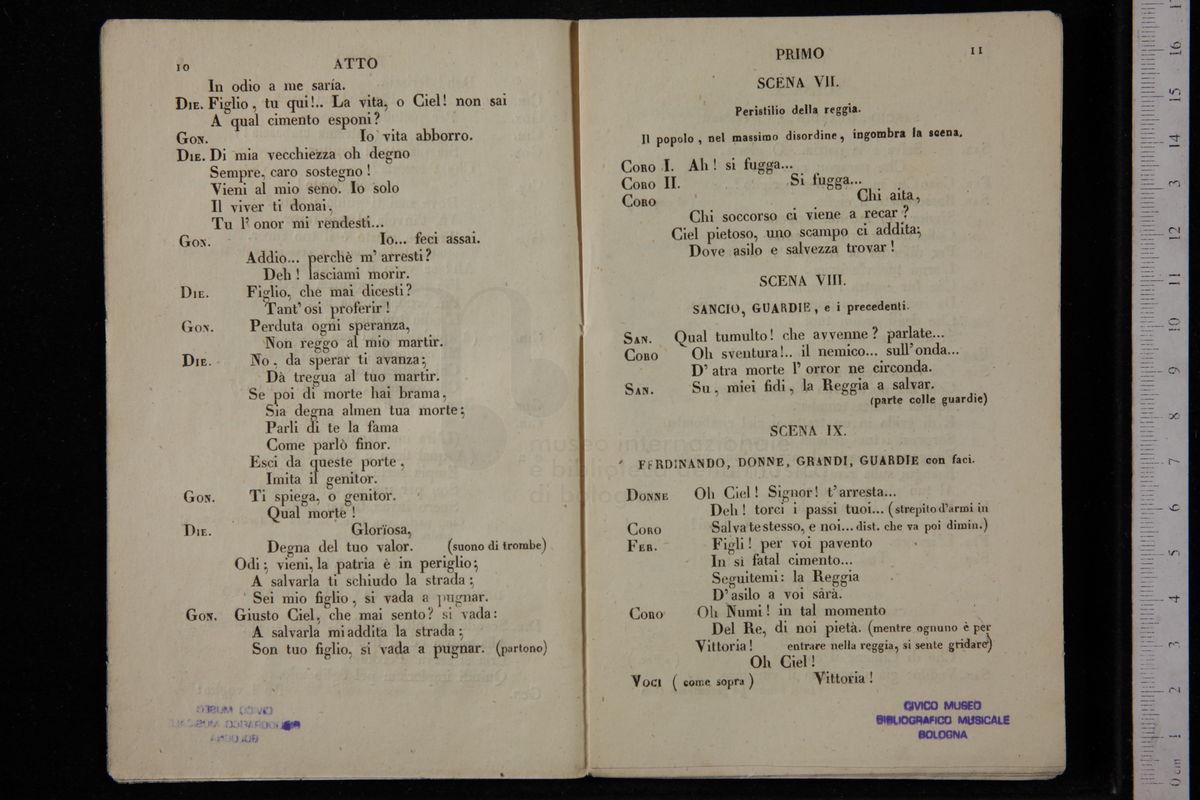 10 ATTO
In odio a me saría.
DIE. Figlio, tu qui!.. La vita, o Ciel! non sai
A qual cimento esponi?
GON. Io vita abborro.
DIE. Di mia vecchiezza oh degno
Sempre, caro sostegno!
Vieni al mio seno. Io solo
Il viver ti donai,
Tu l'onor mi rendesti...
GON. Io... feci assai.
Addio... perchè m' arresti?
Deh! lasciami morir.
DIE. Figlio, che mai dicesti?
Tant' osi proferir!
GON. Perduta ogni speranza,
Non reggo al mio martir.
DIE. No, da sperar ti avanza;
Dà tregua al tuo martir.
Se poi di morte hai brama,
Sia degna almen tua morte;
Parli di te la fama
Come parlò finor.
Esci da queste porte,
Imita il genitor.
GON. Ti spiega, o genitor.
Qual morte!
DIE. Glorïosa,
Degna del tuo valor. (suono di trombe)
Odi; vieni, la patria è in periglio;
A salvarla ti schiudo la strada;
Sei mio figlio, si vada a pugnar.
GON. Giusto Ciel, che mai sento? si vada:
A salvarla mi addita la strada;
Son tuo figlio, si vada a pugnar. (partono)
PRIMO 11
SCENA VII.
Peristilio della reggia.
Il popolo, nel massimo disordine, ingombra la scena.
CORO I. Ah! si fugga...
CORO II. Si fugga...
CORO Chi aita,
Chi soccorso ci viene a recar?
Ciel pietoso, uno scampo ci addita;
Dove asilo e salvezza trovar!
SCENA VIII.
SANCIO, GUARDIE, e i precedenti.
SAN. Qual tumulto! che avvenne? parlate...
CORO Oh sventura!.. il nemico... sull'onda...
D' atra morte l' orror ne circonda.
SAN. Su, miei fidi, la Reggia a salvar.
(parte colle guardie)
SCENA IX.
FERDINANDO, DONNE, GRANDI, GUARDIE con faci.
DONNE Oh Ciel! Signor! t'arresta...
Deh! torci i passi tuoi... (strepito d'armi in
CORO Salva te stesso, e noi... dist. che va poi dimin.)
FER. Figli! per voi pavento
In sì fatal cimento...
Seguitemi: la Reggia
D'asilo a voi sarà.
CORO Oh Numi! in tal momento
Del Re, di noi pietà. (mentre ognuno è per
Vittoria! entrare nella reggia, si sente gridare)
Oh Ciel!
VOCI (come sopra) Vittoria!
CIVICO MUSEO
BIBLIOGRAFICO MUSICALE
BOLOGNA
museo internazionale
e biblioteca della musica
di bologna
0 cm 1 2 3 4 5 6 7 8 9 10 11 12 13 14 15 16